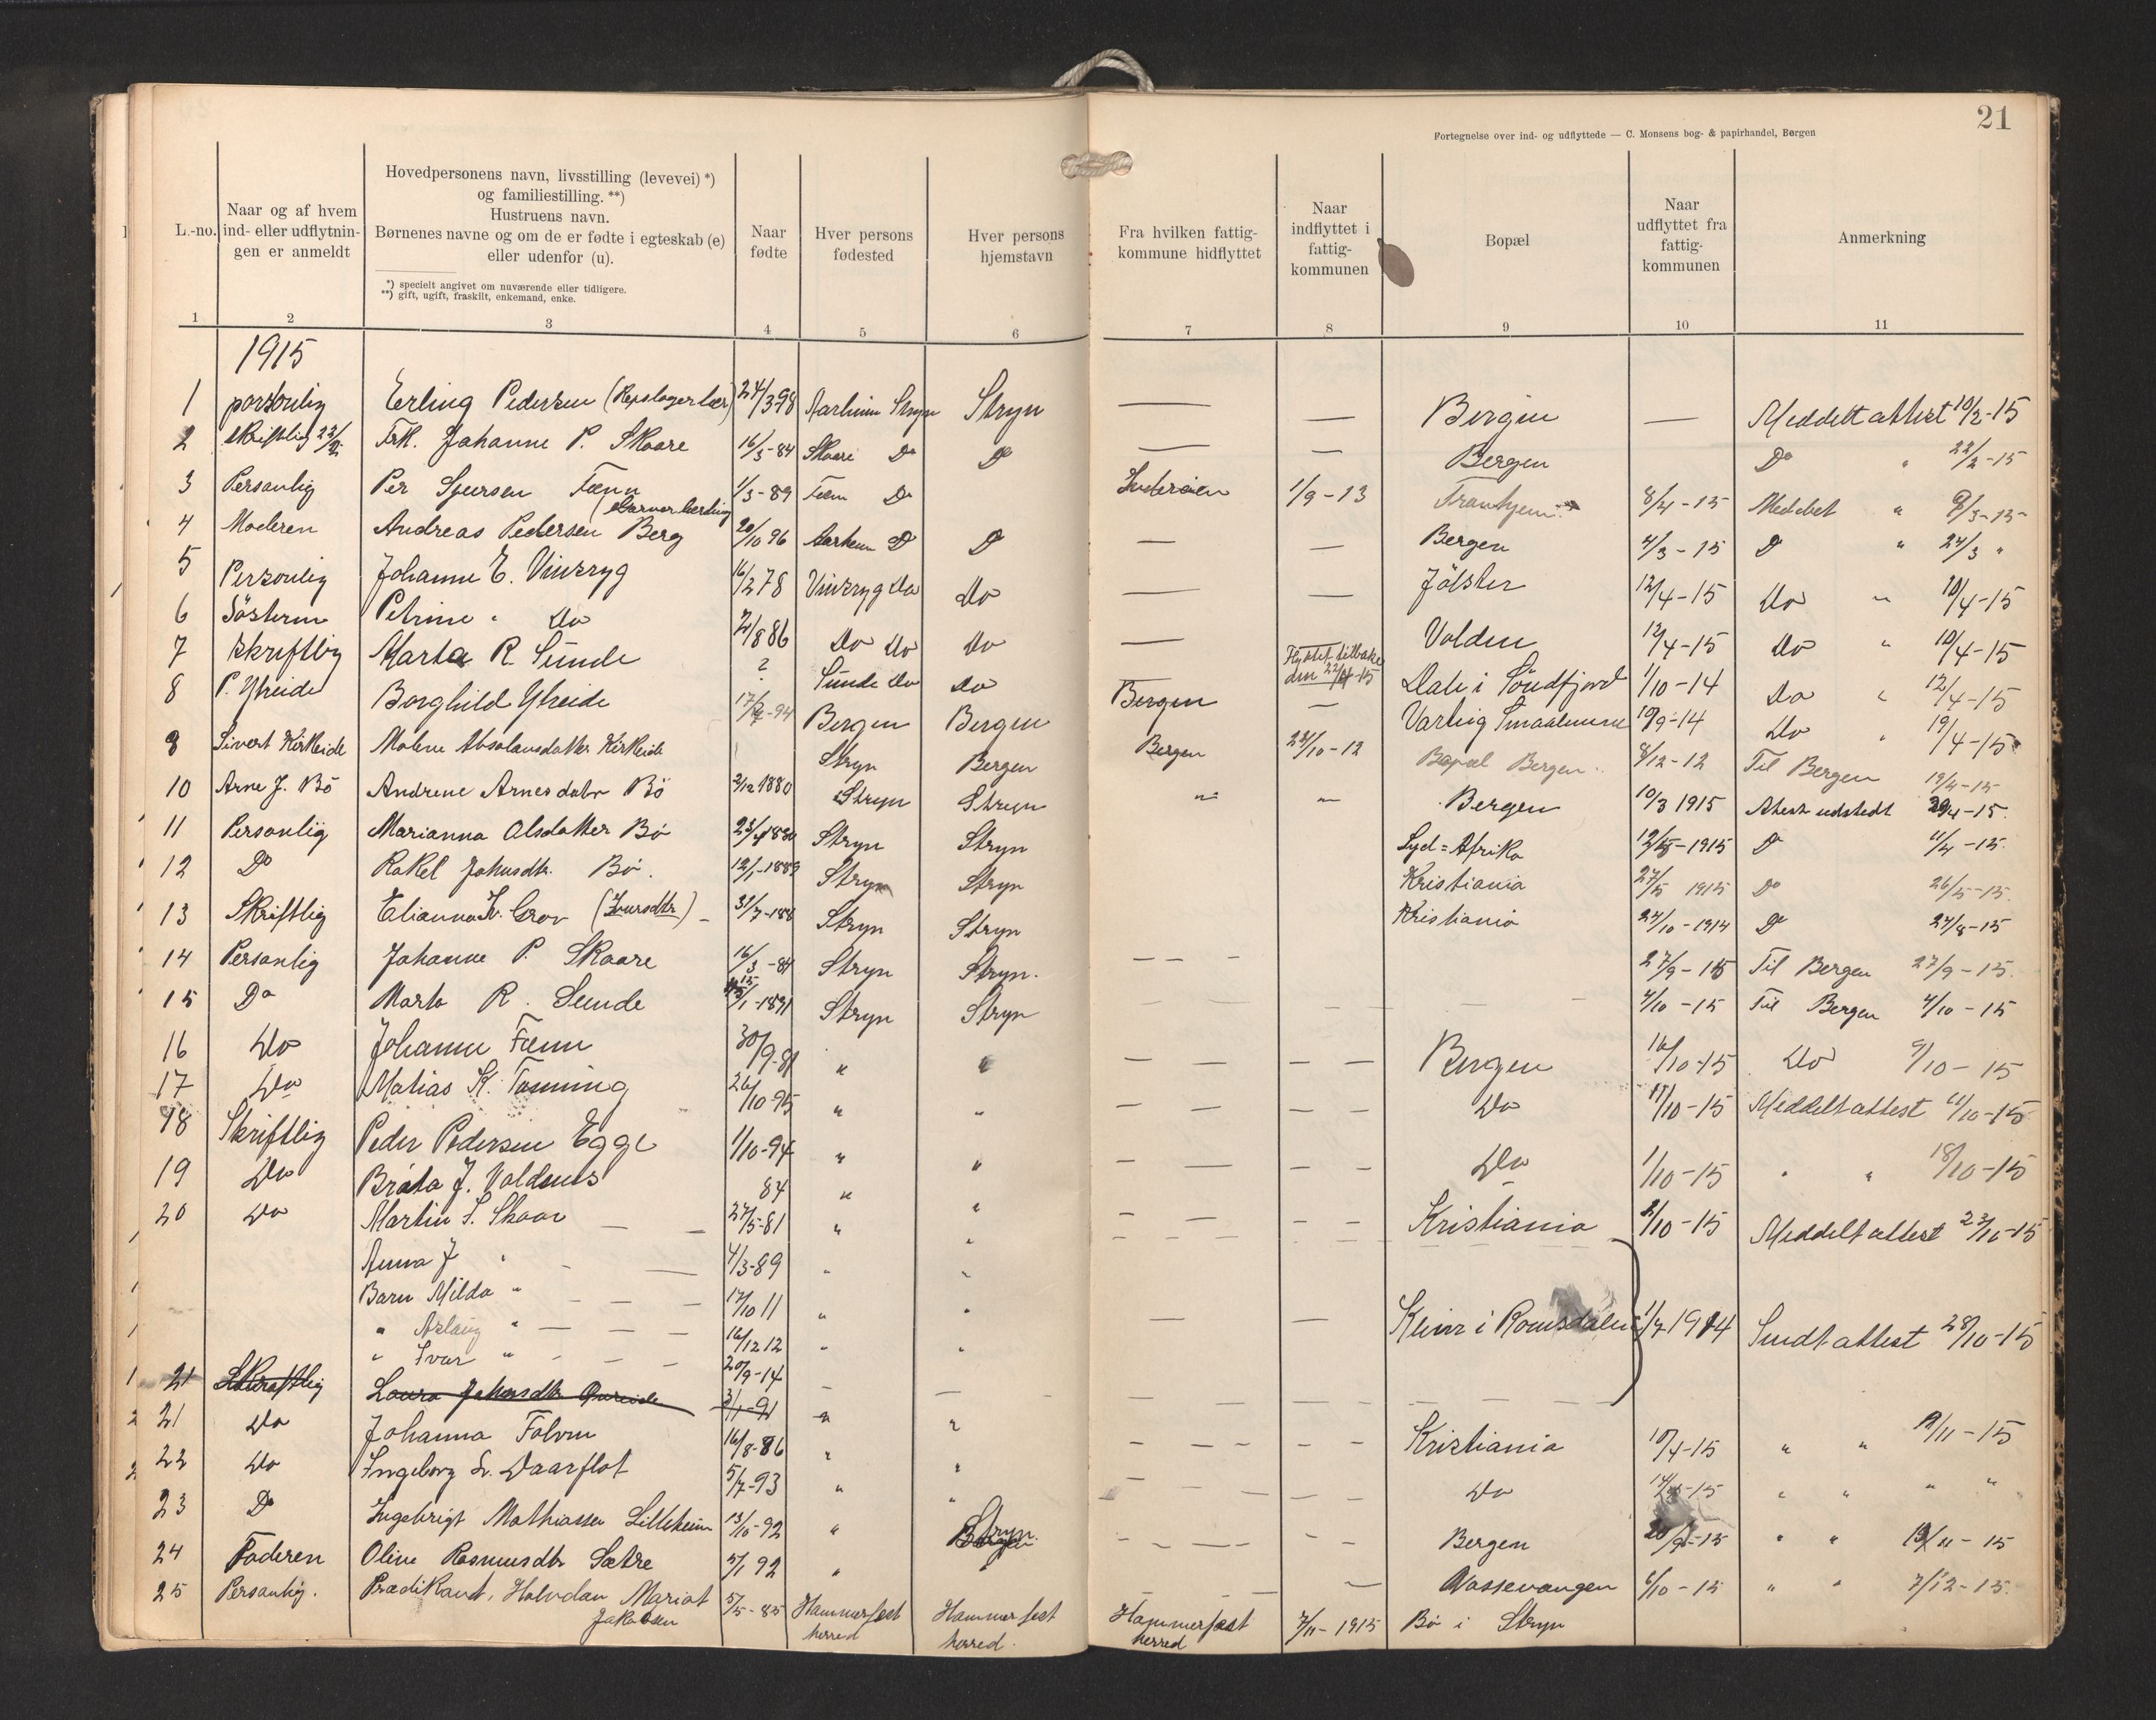 21
Fortegnelse over ind- og udflyttede — C. Monsens bog- & papirhandel, Bergen
L.-no.
Naar og af hvem
ind- eller udflytnin-
gen er anmeldt
Hovedpersonens navn, livsstilling (levevei) *)
og familiestilling. **)
Hustruens navn.
Børnenes navne og om de er fødte i egteskab (e)
eller udenfor (u).
*) specielt angivet om nuværende eller tidligere.
**) gift, ugift, fraskilt, enkemand, enke.
Naar
fødte
Hver persons
fødested
Hver persons
hjemstavn
Fra hvilken fattig-
kommune hidflyttet
Naar
indflyttet i
fattig-
kommunen
Bopæl
Naar
udflyttet fra
fattig-
kommunen
Anmerkning
1 2 3 4 5 6 7 8 9 10 11
1915
1 personlig Erling Pedersen 24/3-98 Aarheim Stryn Stryn — — Bergen — Meddelt attest 10/2-15
2 skriftlig Frk. Johanne P. Skaare 16/3-84 Skaare Do Do — — Bergen Do " 22/2-15
3 Personlig Per Sjursen Fænn 1/3-89 Fæn Do Inderøien 1/9-13 Trondhjem 8/4-15 Meddelt " 9/3-15
4 Moderen Andreas Pedersen Berg 20/10 96 Aarheim Do Do — — Bergen 4/3-15 Do " 24/3 "
5 Personlig Johanne E. Vinsryg 16/2 78 Vinsryg Do Do — — Jölster 12/4-15 Do " 10/4-15
6 Søsteren Petrine " Do 2/8 86 Do Do Do — Volden 12/4-15 Do " 10/4-15
7 Skriftlig Marta R. Sunde ? Sunde Do Do Flyttet tilbake den 22/4-15 Dale i Söndfjord 1/10-14 Do " 12/4-15
8 P. Ytreide Borghild Ytreide Bergen Bergen Bergen — Varteig Smaalenene 10/9-14 Do " 19/4-15
9 Sivert Kirkeide Malene Absalonsdatter Kirkeide Stryn Bergen Bergen 22/10-12 Bopæl Bergen 8/12-12 Til Bergen 19/4-15
10 Arne J. Bö Andrene Arnesdatr Bö 2/12 1880 Stryn Stryn " " Bergen 10/3 1915 Attest udstedt 20/4-15
11 Personlig Marianna Olsdatter Bö Stryn Stryn Syd=Afrika Do
12 Do Rakel Johnsdtr. Bö. 12/1-1889 Stryn Stryn Kristiania 27/5 1915 Do 26/5-15.
13 Skriftlig Elianna Iv. Grov (Iversdtr) Stryn Stryn Kristiania 24/10-1914 Do 24/8-15
14 Personlig Johanne P. Skaare 16/3-84 Stryn Stryn. — — — 27/9-15 Til Bergen 27/9-15.
15 Do Marta R. Sunde Stryn Stryn 4/10-15 Til Bergen 4/10-15
16 Do Johanne Fænn 30/9-81 " " — — — — Bergen 16/10-15 Do 9/10-15
17 Do Matias K. Tonning 26/10-95 " " — — — — Do 17/10-15 Meddelt attest 11/10-15
18 Skriftlig Peder Pedersen Egge 1/10-94 " " — — — — Do 1/10-15 " " 18/10-15
19 Do Bråta J. Voldsnes 84 " " — — — — Kristiania 2/10-15 Meddelt attest 23/10-15
20 Do Martin S. Skaar 27/5-81 " "
Anna J " 4/3-89 " "
Barn Milda " 17/10 11 " " — — i Romsdalen 1/7 1914 Sendt attest 28/10-15
" Aslaug " 16/12 12 " "
" Ivar " 20/9-14
21 Skriftlig Laura Johnsdtr 3/1-91
21 Do Johanna Folven 16/8-86 " " Kristiania 10/4-15 " " 12/11-15
22 Do Ingeborg L. Daarflot 5/7-93 " " Do " " " "
23 Do Ingebrigt Mathiassen Lillekeim 13/10-92 " Stryn. Bergen 20/9-15 " " 13/11-15
24 Faderen Oline Rasmusdtr Sætre 5/1 92 " " — Vossevangen 6/10-15 " " 7/12-15.
25 Personlig. Prædikant, Halvdan Mariot 5/5-85 Hammerfest Hammerfest Hammerfest 7/11-1915 Bö i Stryn
Jakobsen herred herred. herred